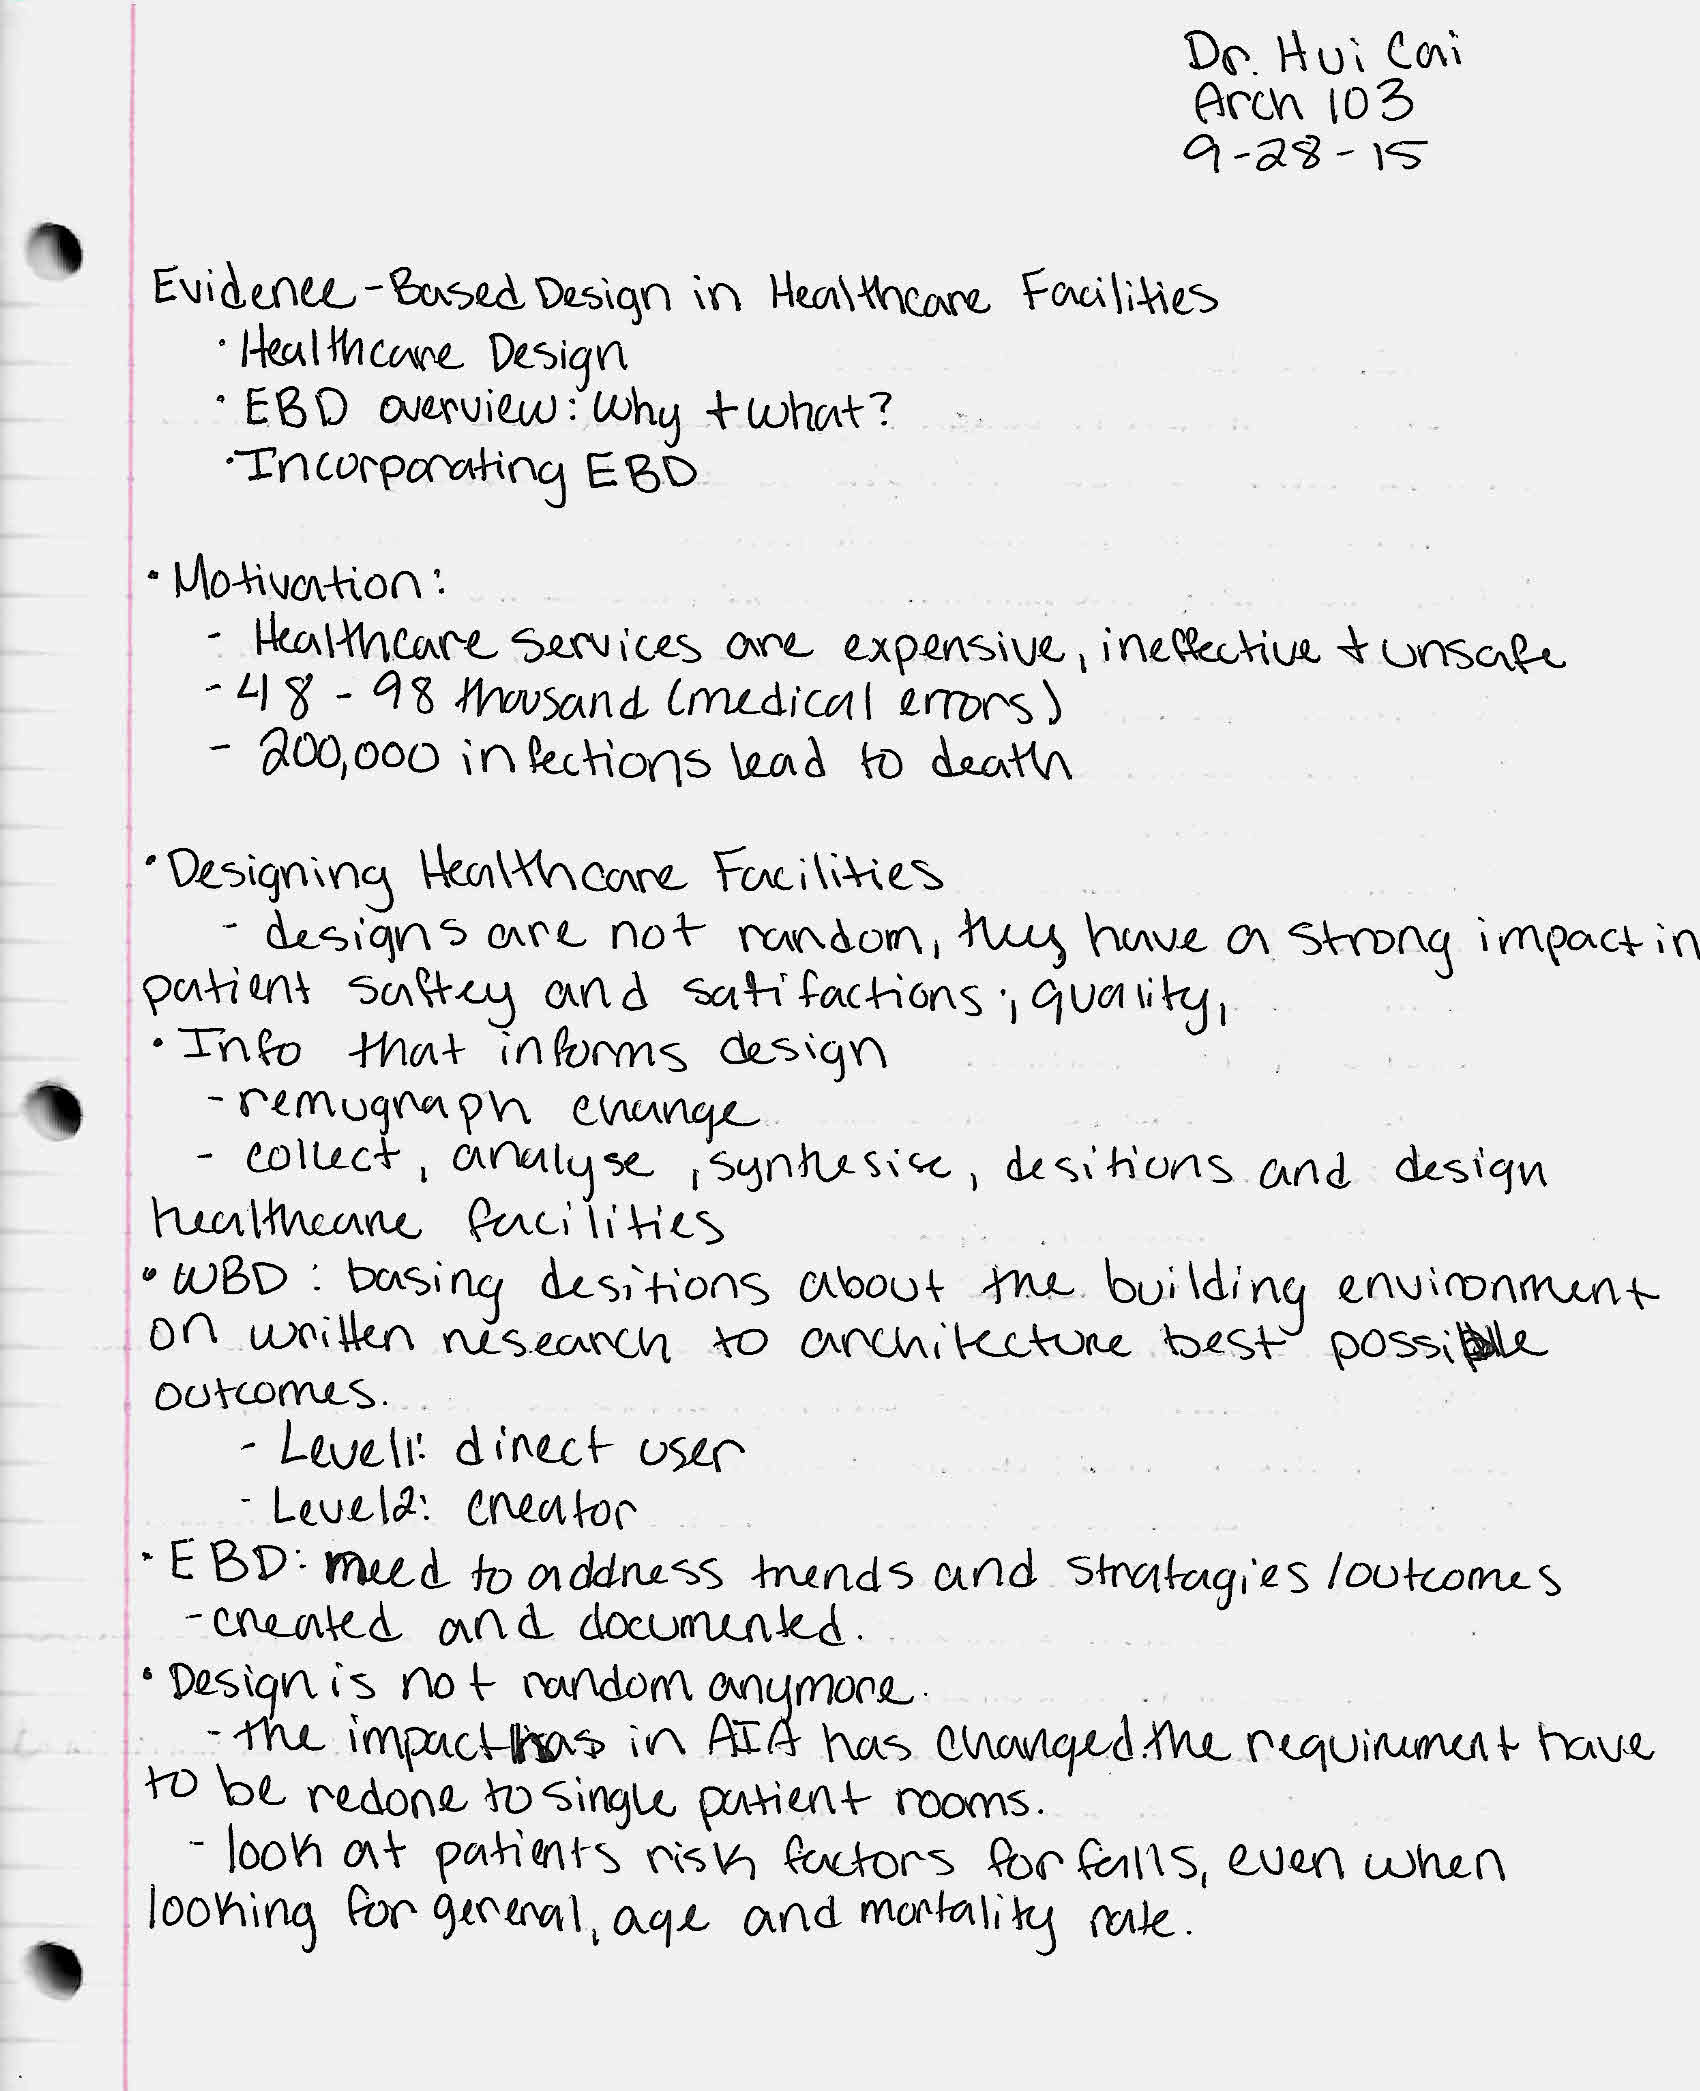 Dr. Hui Cai
Arch 103
9-28-15
Evidence-Based Design in Healthcare Facilities
· Healthcare Design
· EBD overview: Why + what?
· Incorporating EBD
· Motivation:
- Healthcare services are expensive, ineffective + unsafe
- 48 - 98 thousand (medical errors)
- 200,000 infections lead to death
· Designing Healthcare Facilities
- designs are not random, they have a strong impact in
patient saftey and satifactions; quality,
· Info that informs design
- remugraph change
- collect, analyse, synthesise, desitions and design
healthcare facilities
· WBD: basing desitions about the building environment
on written research to architecture best possible
outcomes.
- Level1: direct user
- Level2: creator
· EBD: need to address trends and stratagies/outcomes
- created and documented.
· Design is not random anymore.
- the impact has in AIA has changed. the requirement have
to be redone to single patient rooms.
- look at patients risk factors for falls, even when
looking for general, age and mortality rate.